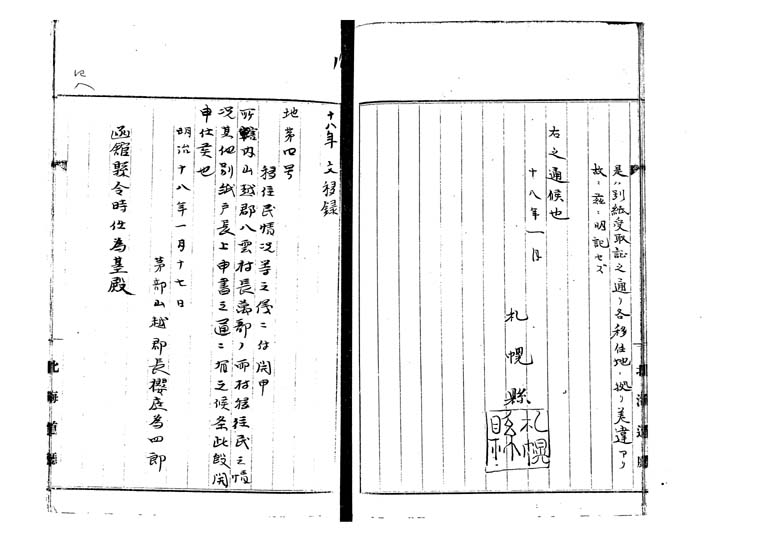 是ハ別紙受取証之通リ各移住地ニ拠リ差違アリ
故ニ茲ニ明記セズ
右之通候也
十八年一月
札幌縣
札幌縣印
十八年 文移録
地第四号
移住民情况等之儀ニ付開申
所轄内山越郡八雲村長萬部ノ両村移住民之情
况其他別紙戸長上申書之通ニ有之候条此段開
申仕候也
明治十八年一月十七日
茅部山越郡長櫻庭為四郎
函館縣令時任為基殿
北海道廳
北海道廳